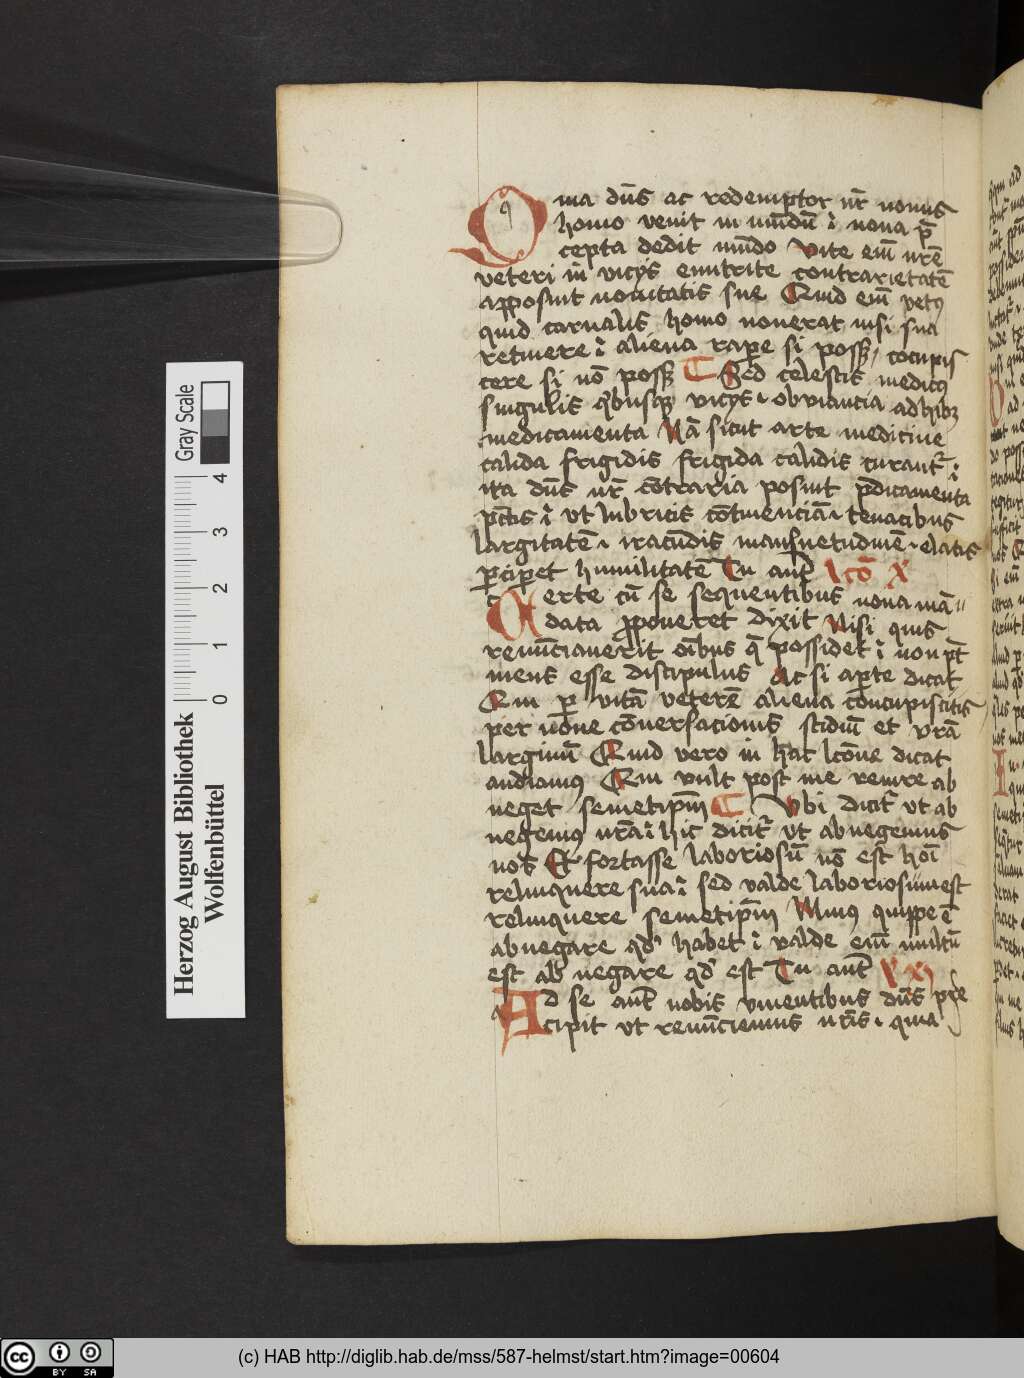 Quia dn̄s ac redemptor nr̄ nouus
homo venit in mūdū ⁊ noua p̄
cepta dedit mūdo vite em̄ nr̄e
veteri in vicijs enutrite contrarietatē
apposuit nouitatis sue Quid em̄ vetꝰ
quid carnalis homo nouerat nisi sua
retinere ⁊ aliena rape si posꝫ / cōcupis
cere si nō posꝫ Sed celestis medicꝰ
singulis qͥbusqꝫ vicijs obviancia adhibꝫ
medicamenta Nā sicut arte medicine
calida frigidis frigida calidis curant᷑
ita dn̄s nr̄ cōtraria posuit p̄dicamenta
pctīs ⁊ vt lubricis cōtinenciā tenacibus
largitatē iracūdis mansuetudinē elatis
p̄cipet humilitatē Tu aut̄ lcō X
Certe cū se sequentibus noua mā
data ꝓponeret dixit Nisi quis
renūciauerit oībus q̄ possidet ⁊ non pt̄
meus esse discipulus Ac si aꝑte dicat
Qui ꝑ vitā veterē aliena concupiscitis
per noue cōuersacionis studiū et vr̄a
largimī Quid vero in hac lcōne dicat
audiamus Qui vult post me venire ab
neget semetipm̄ Vbi dicit᷑ vt ab
negemus nr̄a ⁊ hic dicit᷑ vt abnegemus
nos Et fortasse laboriosū nō est hoī
relinquere sua ⁊ sed valde laboriosum est
relinquere semetipm̄ Minus quippe ē
abnegare qd̛ habet ⁊ valde em̄ multū
est abnegare qd̛ est Tu aut̄ XI
Ad se aut̄ nobis vinentibus dn̄s pre
cipit vt renūciemus nr̄is quia
Herzog August Bibliothek
Wolfenbüttel
0 1 2 3 4
Gray Scale
cc BY SA
(c) HAB http://diglib.hab.de/mss/587-helmst/start.htm?image=00604